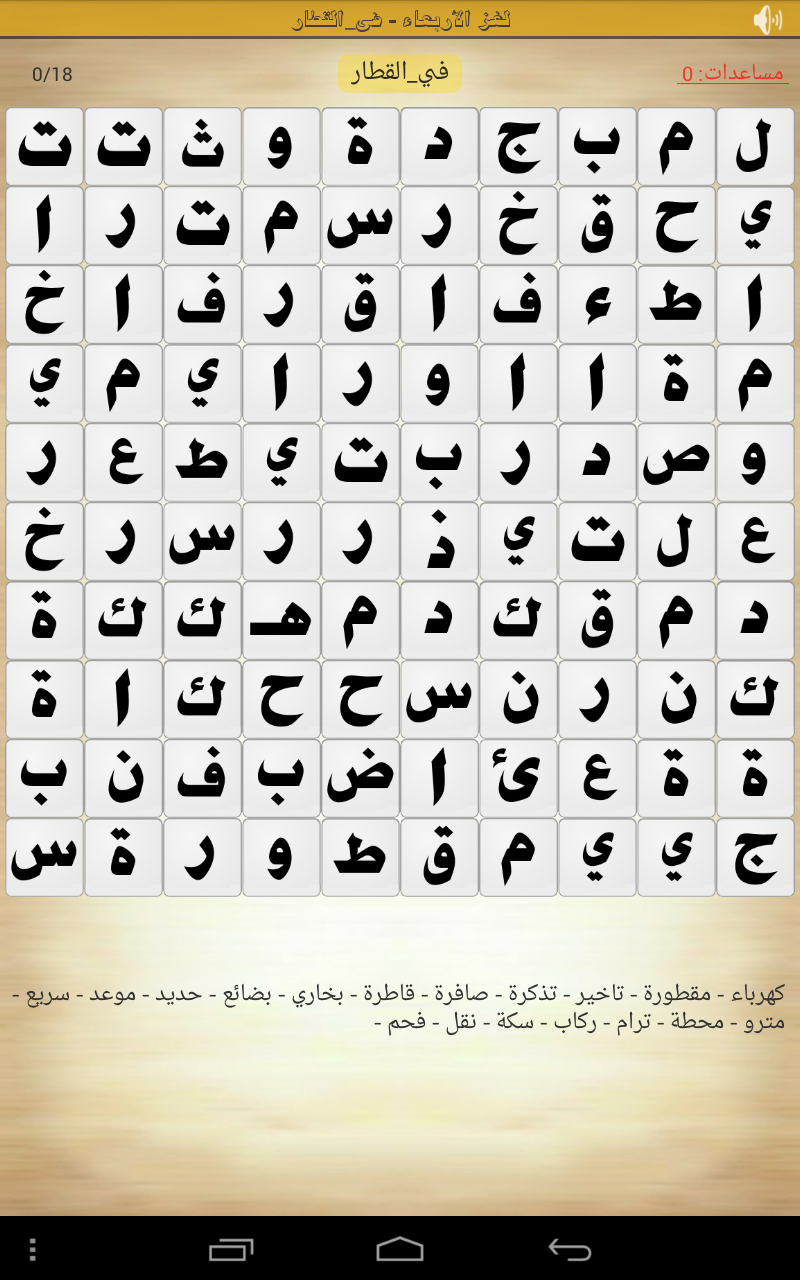 لغز الأربعاء - في_القطار
مساعدات: 0
في_القطار
0/18
ل م ب ج د ة و ث ت ت
ي ح ق خ ر س م ت ر ا
ا ط ء ف ا ق ر ف ا خ
م ة ا ا و ر ا ي م ي
و ص د ر ب ت ي ط ع ر
ع ل ت ي ذ ر ر س ر خ
د م ق ك د م هـ ك ك ة
ك ن ر ن س ح ح ك ا ة
ة ة ع ئ ا ض ب ف ن ب
ج ي ي م ق ط و ر ة س
كهرباء - مقطورة - تاخير - تذكرة - صافرة - قاطرة - بخاري - بضائع - حديد - موعد - سريع -
مترو - محطة - ترام - ركاب - سكة - نقل - فحم -